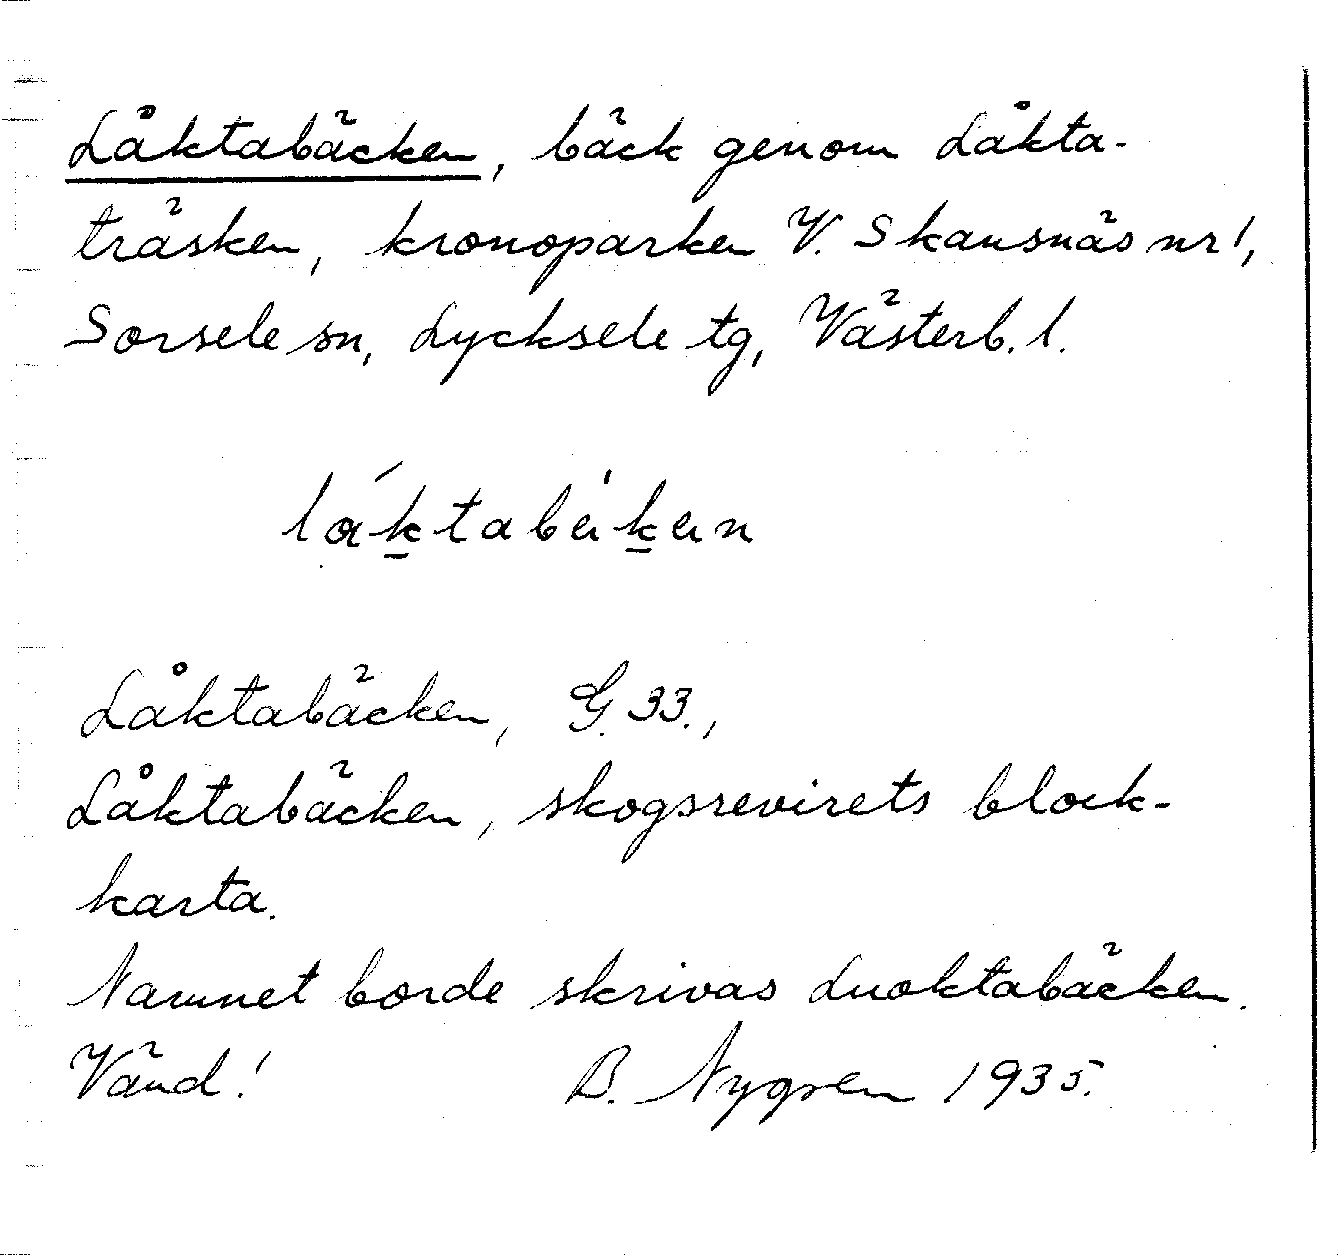 Låktabäcken, bäck genom Låkta-
träsken, kronoparken V. Skansnäs nr 1,
Sorsele sn, Lycksele tg, Västerb. l.
Låktabäcken, G. 33.,
Låktabäcken, skogsrevirets block-
karta.
Namnet borde skrivas Luoktabäcken.
Vänd! B. Nygren 1935.